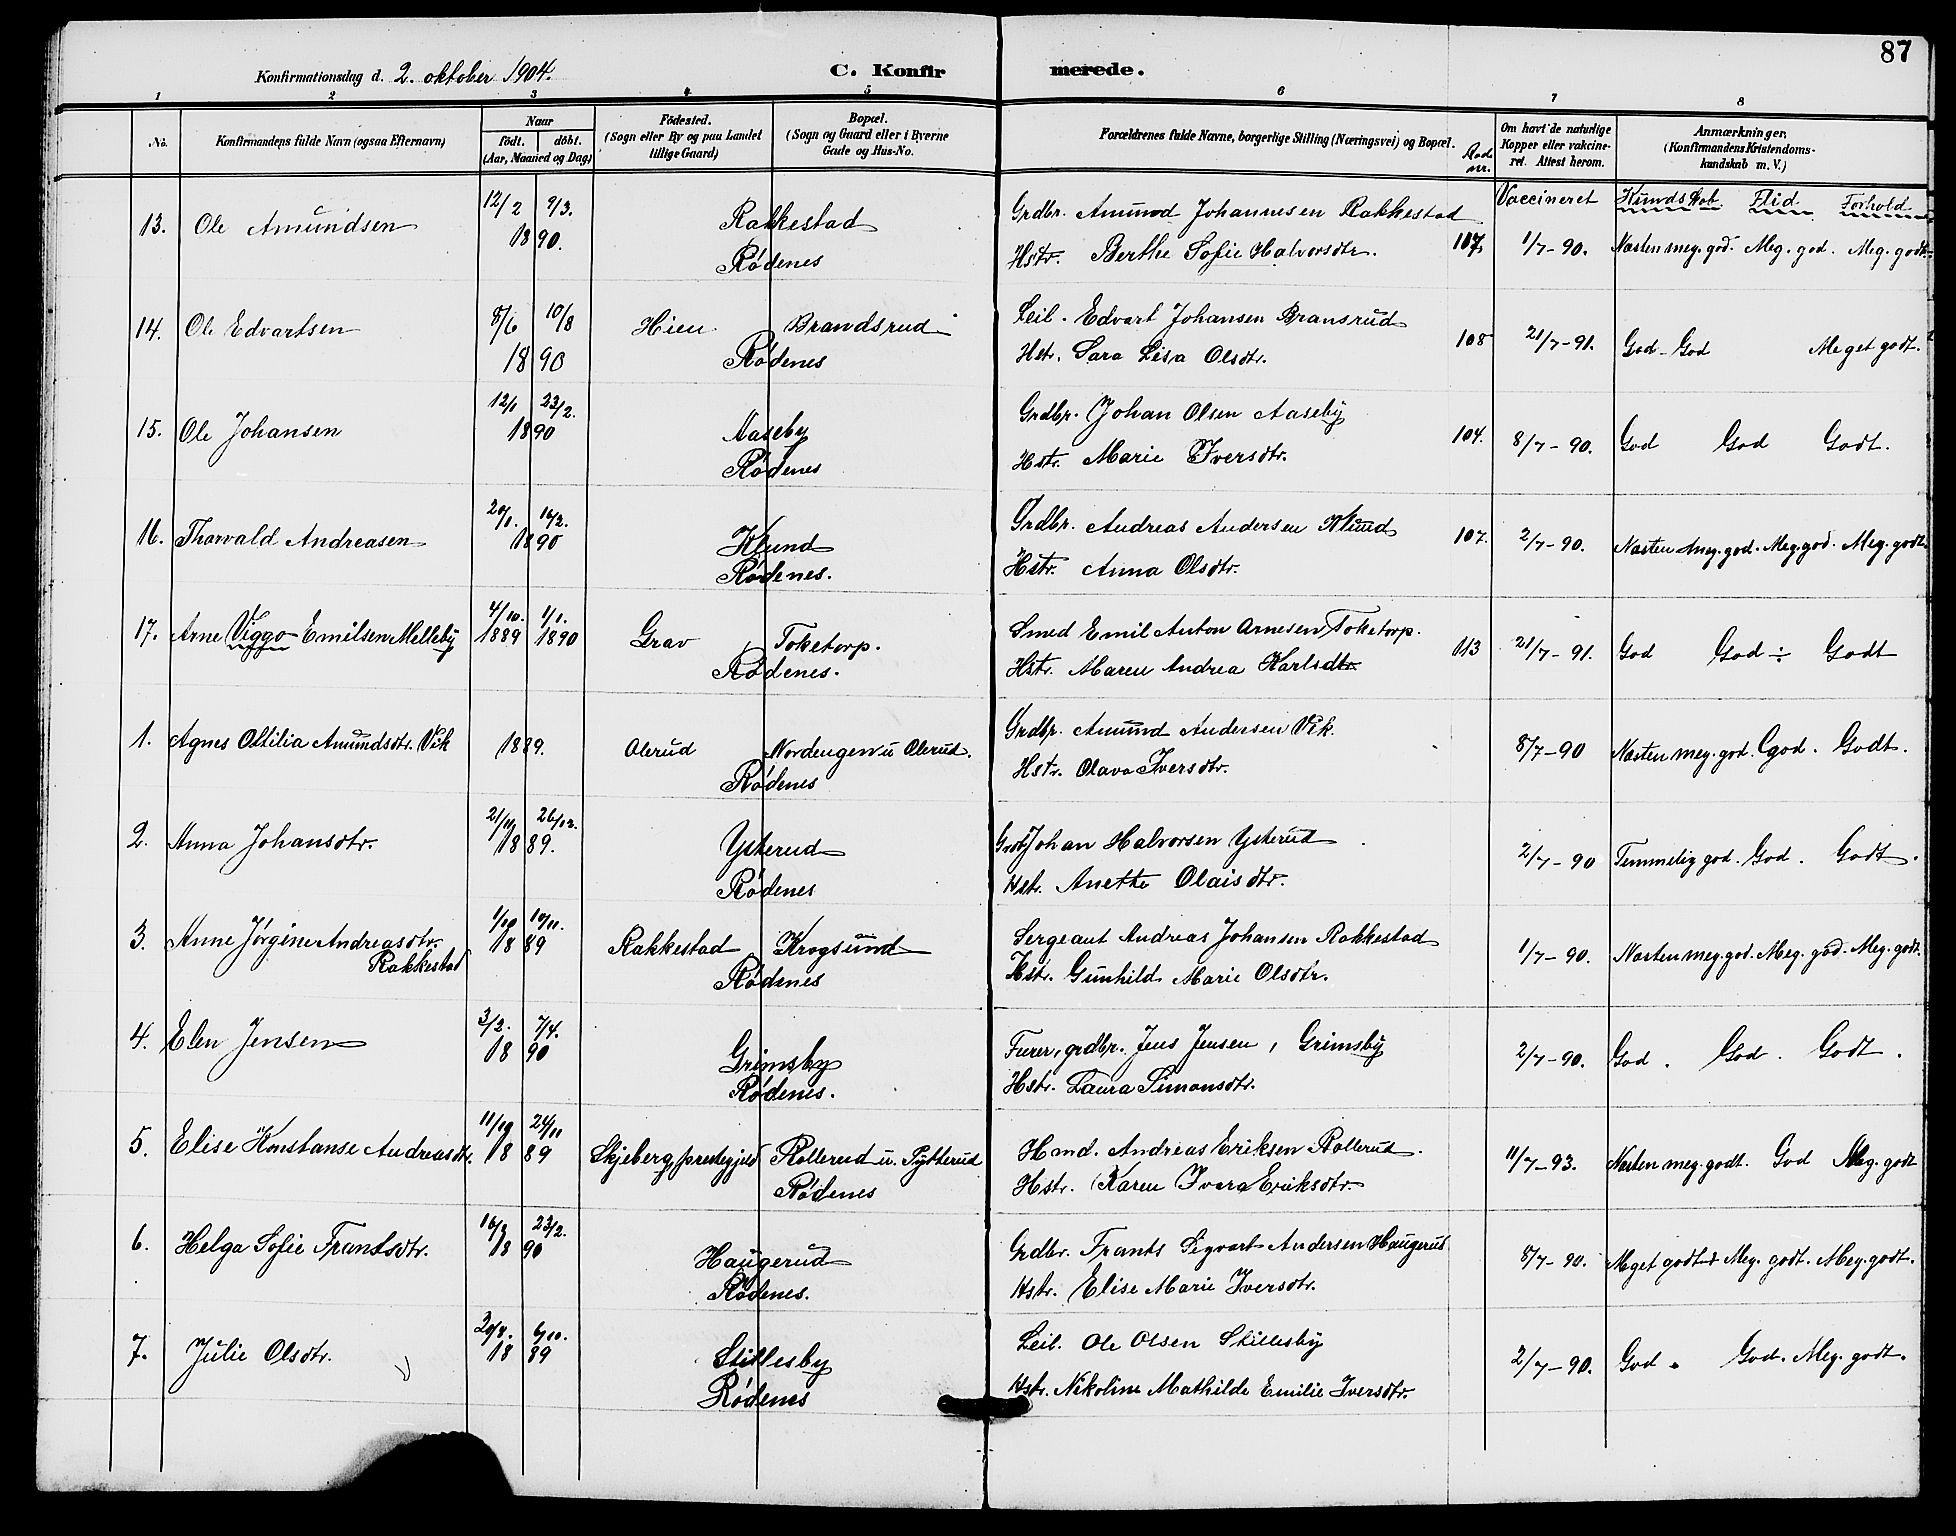 87
Konfirmationsdag d. 2. oktober 1904.
C. Konfirmerede.
1 2 3 4 5 6 7 8
No.
Konfirmandens fulde Navn (ogsaa Efternavn)
Naar
födt. döbt.
(Aar, Maaned og Dag)
Födested.
(Sogn eller By og paa Landet
tillige Gaard)
Bopæl.
(Sogn og Gaard eller i Byerne
Gade og Hus-No.
Forældrenes fulde Navne, borgerlige Stilling (Næringsvei) og Bopæl.
Rode nr.
Om havt de naturlige
Kopper eller vakcine-
ret. Attest herom.
Anmærkninger.
(Konfirmandens Kristendoms-
kundskab m. V.)
Vaccineret Kundskab. Flid. Forhold
13. Ole Amundsen 12/2 9/3. Rakkestad Grdbr. Amund Johannesen Rakkestad
1890. Rödenes Hstr. Berthe Sofie Halvorsdtr. 107. 1/7-90. Næsten meg. god. Meg. god. Meg. godt.
14. Ole Edvartsen 8/6 10/8 Hien Brandsrud Leil. Edvart Johansen Bransrud
1890 Rödenes Hstr. Sara Lisa Olsdtr. 108 21/7-91. God - God Meget godt.
15. Ole Johansen 12/1 23/2. 1890 Aaseby Grdbr. Johan Olsen Aaseby
Rödenes Hstr. Marie Iversdtr. 104. 8/7-90. God God Godt.
16. Thorvald Andreasen 20/1. 16/2. 1890 Klund Grdbr. Andreas Andersen Klund
Rödenes. Hstr. Anna Olsdtr. 107. 2/7-90. Næsten meg. god. Meg. god. Meg. godt.
17. Arne Viggo Emilsen Melleby 4/10. 1889 1/1. 1890 Grav Toketorp. Smed Emil Anton Arnesen Toketorp.
Rödenes. Hstr. Maren Andrea Karlsdtr. 113 21/7-91. God God ÷ Godt
1. Agnes Ottilia Amundsdtr. Vik 1889. Olerud Nordengen u. Olerud. Grdbr. Amund Andersen Vik.
Rödenes Hstr. Olava Iversdtr. 8/7-90 Næsten meg. god. god. Godt.
2. Anna Johansdtr. 21/11 26/12. 1889. Ysterud Grdb. Johan Halvorsen Ysterud
Rödenes Hstr. Anette Olaisdtr. 2/7-90 Temmelig god. God. Godt.
3. Anne Jörgine Andreasdtr. 1/10 10/11. 1889 Rakkestad Krogsund Sergeant Andreas Johansen Rakkestad
Rakkestad Rödenes Hstr. Gunhild Marie Olsdtr. 1/7-90. Næsten meg. god. Meg. god. Meg. godt.
4. Elen Jensen 3/2. 7/4. 1890 Grimsby Furer, grdbr. Jens Jensen, Grimsby
Rödenes. Hstr. Laura Simonsdtr. 2/7-90. God. God. Godt.
5. Elise Konstanse Andreasdtr. 11/10 24/11 1889 Skjeberg prestegjeld Rollerud u. Tytterud Hmd. Andreas Eriksen Rollerud.
Rödenes Hstr. Karen Ivara Eriksdtr. 11/7-93. Næsten meg. godt. God Meg. godt
6. Helga Sofie Frantsdtr. 23/2. 1890 Haugerud Grdbr. Frants Sigvart Andersen Haugerud
Rödenes. Hstr. Elise Marie Iversdtr. 8/7-90. Meget godt. Meg. godt. Meg. godt.
7. Julie Olsdtr. 20/8. 6/10. 1889 Skillesby Leil. Ole Olsen Skillesby
Rödenes Hstr. Nikoline Mathilde Emilie Iversdtr. 2/7-90. God. God. Meg. godt.